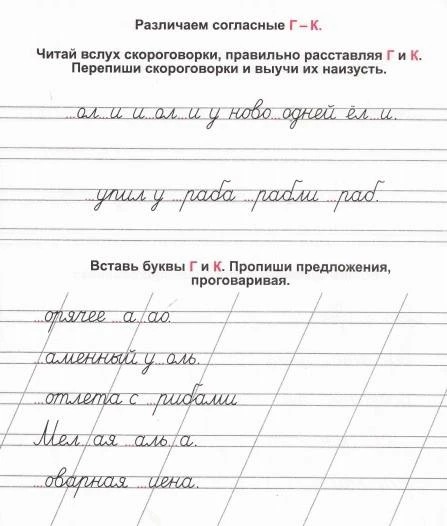 Различаем согласные Г – К.
Читай вслух скороговорки, правильно расставляя Г и К.
Перепиши скороговорки и выучи их наизусть.
...ол...и и ...ол...и у ново...одней ёл...и.
...упил у ...раба ...рабли ...раб.
Вставь буквы Г и К. Пропиши предложения,
проговаривая.
...орячее ...а...ао.
...аменный у...оль.
...отлета с ...рибами
Мел...ая ...аль...а.
...оварная ...иена.